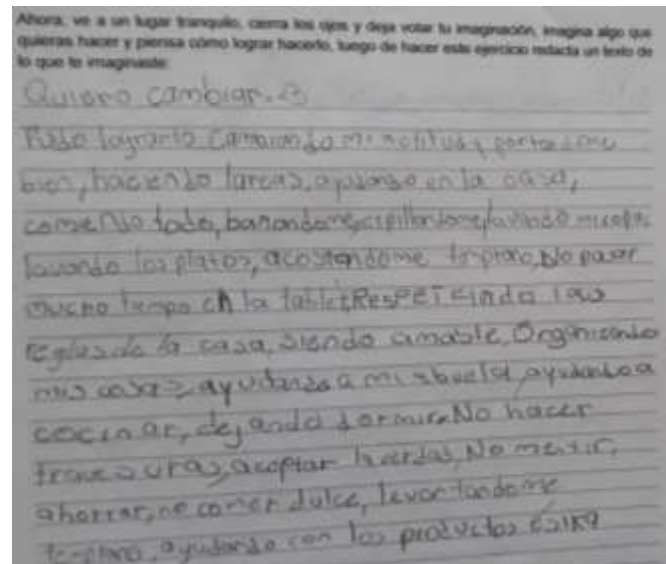 Ahora, ve a un lugar tranquilo, cierra los ojos y deja volar tu imaginación, imagina algo que
quieras hacer y piensa cómo lograr hacerlo, luego de hacer este ejercicio redacta un texto de
lo que te imaginaste:
Quiero cambiar. <3
Puedo lograrlo cambiando mi actitud y portandome
bien, haciendo tareas, ayudando en la casa,
comiendo todo, bañandome, cepillandome, lavando mi ropa,
lavando los platos, acostandome temprano, No pasar
mucho tiempo en la tablet Respetando las
reglas de la casa, siendo amable, Organizando
mis cosas, ayudando a mi abuela, ayudando a
cocinar, dejando dormir. No hacer
travesuras, aceptar No mentir,
ahorrar, no comer dulce, levantandome
temprano, ayudando con los productos